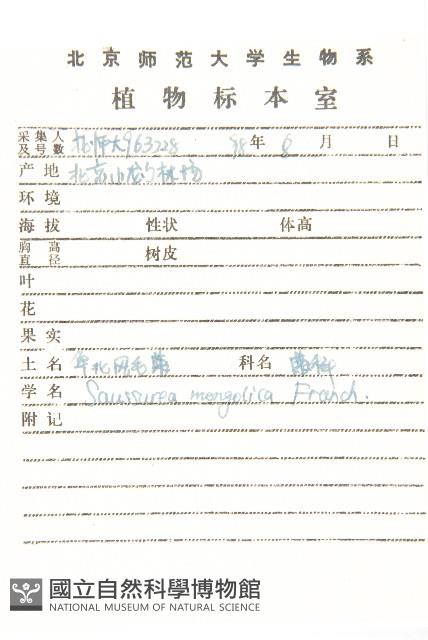 北京师范大学生物系
植物标本室
采集人及号数 北师大963228 98年 8 月 日
产地 北京小龙门林场
环境
海拔 性状 体高
胸高直径 树皮
叶
花
果实
土名 华北风毛菊 科名 菊科
学名 Saussurea mongolica Franch.
附记
國立自然科學博物館
NATIONAL MUSEUM OF NATURAL SCIENCE